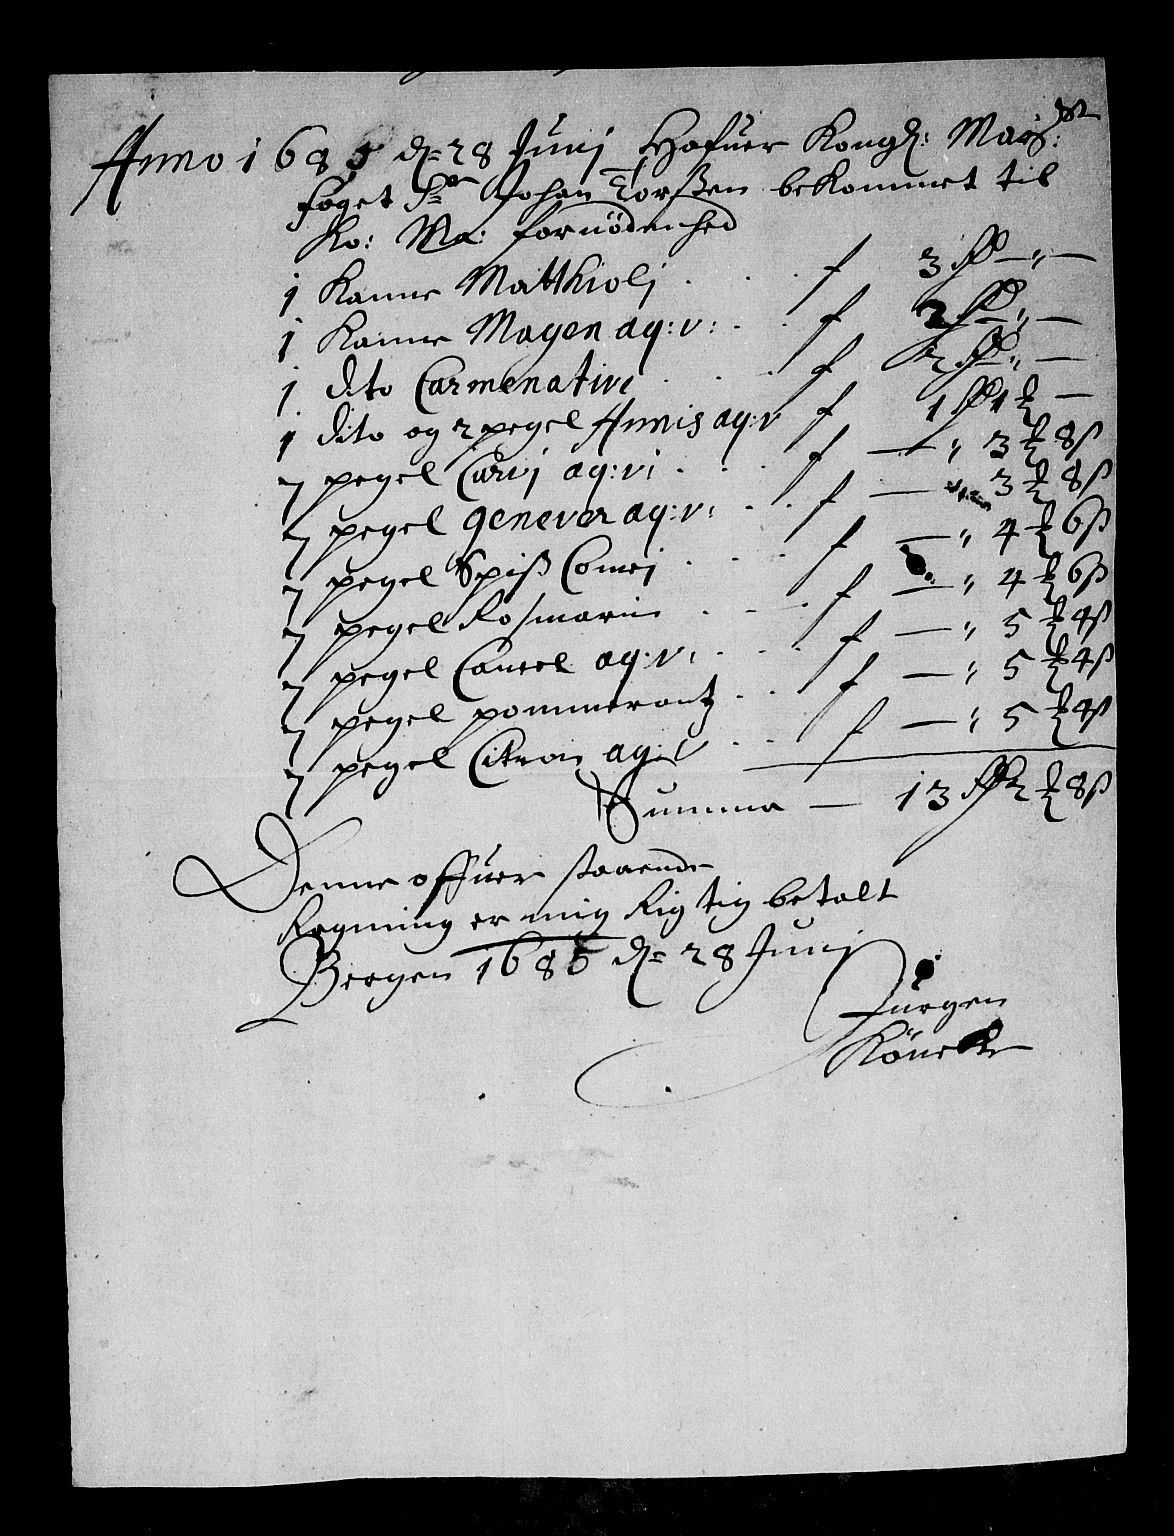 Anno 1685 dn 28 Junj Hafuer Kongl: Mays:tt
foget Sr Johan Torßen bekommet til
Ko: Ma: fornödenhed
1 Kanne Matthiolj . . . f 3 Rd — „ —
1 Kanne Magen aq: v: . . f 2 Rd „ —
1 dito Carmenative . . . f 2 Rd „ —
1 dito og 2 pegel Annis aq: v f 1 Rd 1 ℔ —
7 pegel Carvj aq: vi . . . f — „ 3 ℔ 8 ß
7 pegel genever aq: v: . . f — „ 3 ℔ 8 ß
7 pegel Spiß Comej . . . f — „ 4 ℔ 6 ß
7 pegel Rosmarin . . . f — „ 4 ℔ 6 ß
7 pegel Caneel aq: v: . . . f — „ 5 ℔ 4 ß
7 pegel pommerantz . . f — „ 5 ℔ 4 ß
7 pegel Citron aq: v . . f — „ 5 ℔ 4 ß
Summa — 13 Rd 2 ℔ 8 ß
Denne offuer staaende
Regning er mig Rigtig betalt
Bergen 1685 dn 28 Junj
Jürgen